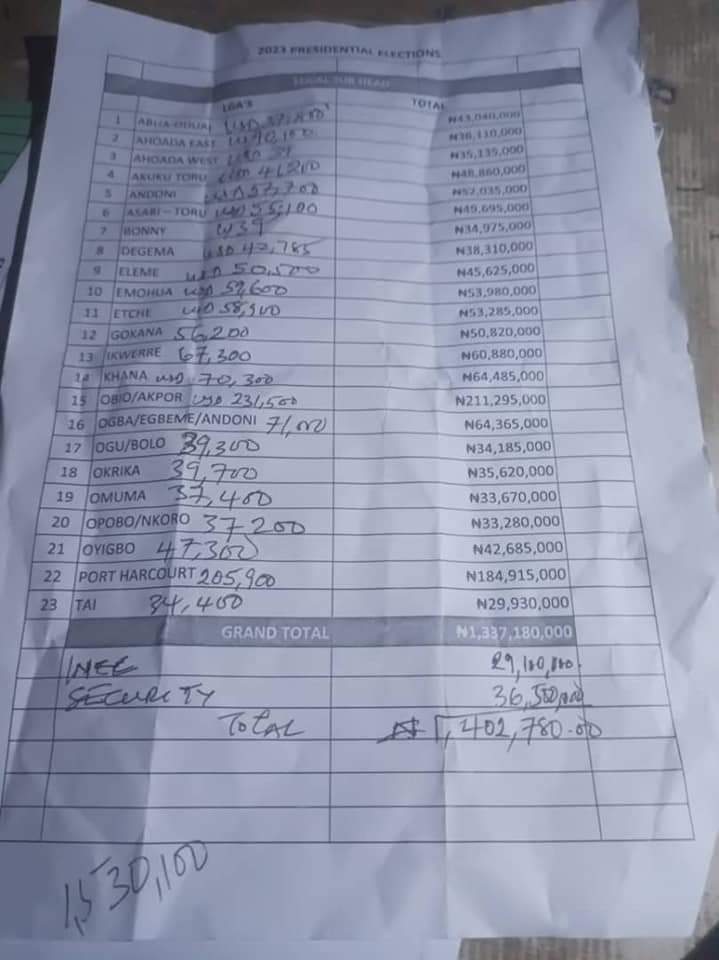 2023 PRESIDENTIAL ELECTIONS
LEGAL SUB HEAD
LGA'S TOTAL
1 ABUA-ODUAL USD ₦43,040,000
2 AHOADA EAST ₦38,110,000
3 AHOADA WEST USD ₦35,135,000
4 AKUKU TORU USD ₦48,860,000
5 ANDONI USD 57,700 ₦52,035,000
6 ASARI-TORU USD 55,100 ₦49,695,000
7 BONNY 39 ₦34,975,000
8 DEGEMA USD 42,785 ₦38,310,000
9 ELEME USD 50,500 ₦45,625,000
10 EMOHUA USD 59,600 ₦53,980,000
11 ETCHE USD 58,900 ₦53,285,000
12 GOKANA 56,200 ₦50,820,000
13 IKWERRE 67,300 ₦60,880,000
14 KHANA USD 70,300 ₦64,485,000
15 OBIO/AKPOR USD 231,500 ₦211,295,000
16 OGBA/EGBEME/ANDONI 71,000 ₦64,365,000
17 OGU/BOLO 39,300 ₦34,185,000
18 OKRIKA 39,700 ₦35,620,000
19 OMUMA 37,400 ₦33,670,000
20 OPOBO/NKORO 37200 ₦33,280,000
21 OYIGBO 47,300 ₦42,685,000
22 PORT HARCOURT 205,900 ₦184,915,000
23 TAI 34,400 ₦29,930,000
GRAND TOTAL ₦1,337,180,000
INEC 29,100,000.
SECURITY 36,500,000
TOTAL ₦1,402,780.00
1,530,100